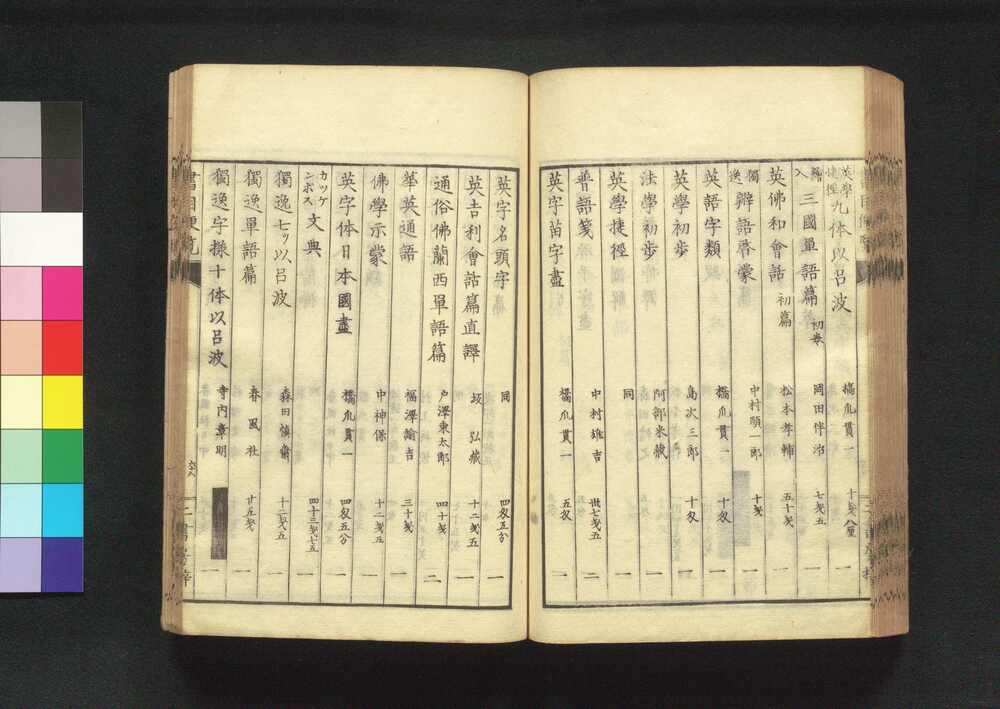 英學捷徑 九体以呂波 橘爪貫一 十戔八厘 一
插入 三國單語篇 初卷 岡田伴治 七戔五 一
英佛和會話 初篇 松本孝輔 五十戔 一
獨逸 辭語啓蒙 中村順一郎 十戔 一
英語字類 橘爪貫一 十匁 一
英學初歩 島次三郎 十匁 一
法學初歩 阿部米藏 一
英學捷徑 同 一
普語箋 中村雄吉 卅七戔五 一
英字苗字盡 橘爪貫一 五匁 一
英字名頭字 同 四匁五分 一
英吉利會話篇直譯 坂弘藏 十二戔五 一
通俗佛蘭西單語篇 戸澤東太郎 四十戔 二
華英通語 福澤諭吉 三十戔 一
佛學示蒙 中神保 十二戔五 一
英字体日本國盡 橘爪貫一 四匁五分 一
カッケンボス 文典 四十三戔七五 一
獨逸七ツ以呂波 森田 十二戔五 一
獨逸單語篇 春風社 廿五戔 一
獨逸字樣十体以呂波 寺内章明 一
書目便覧